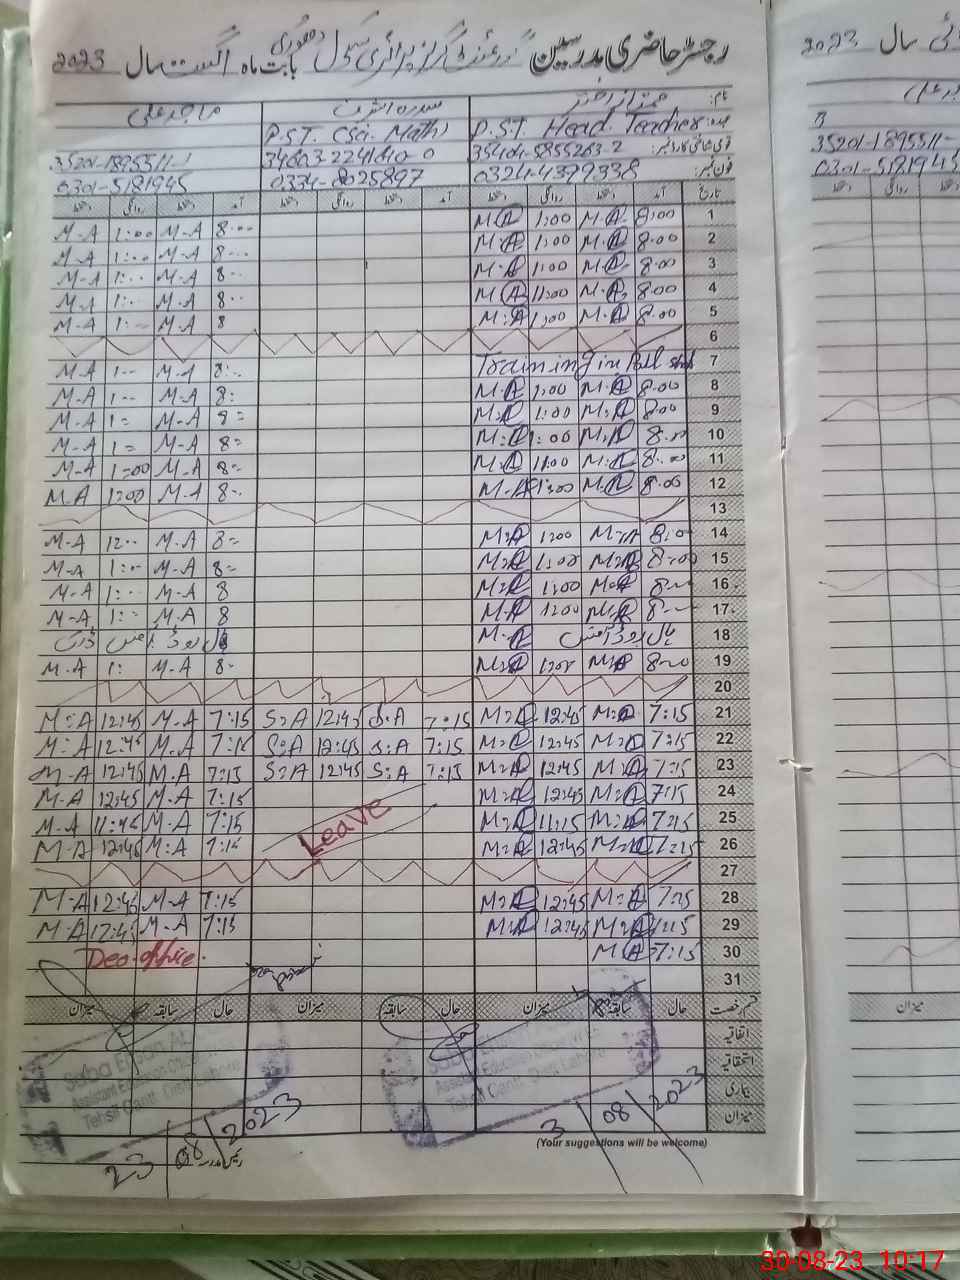 رجسٹر حاضری مدرسین گورنمنٹ گرلز پرائمری سکول بابت ماہ اگست سال 2023
نام: ممتاز اختر سدرہ اشرف ماجد علی
عہدہ: P.S.T. Head Teacher P.S.T. (Sci. Math)
35404-5855263-2 34603-2241640-0 35201-1895511-1
فون نمبر: 0324-4399338 0334-8025897 0301-5181945
تاریخ آمد دستخط روانگی دستخط آمد دستخط روانگی دستخط آمد دستخط روانگی دستخط
1 8:00 M.A 1:00 M.A 8:00 M-A 1:00 M-A
2 8:00 M.A 1:00 M.A 8:.. M-A 1:.. M-A
3 8:00 M.A 1:00 M.A 8:.. M-A 1:.. M-A
4 8:00 M.A 1:00 M.A 8:.. M-A 1:.. M-A
5 8:00 M.A 1:00 M.A 8 M-A 1:.. M-A
6
7 Training in 8:.. M-A 1-- M-A
8 8:00 M.A 1:00 M.A 8: M-A 1-- M-A
9 8:00 M:A 1:00 M:A 8= M-A 1= M-A
10 8:00 M:A 1:00 M:A 8= M-A 1= M-A
11 8:00 M:A 1:00 M:A 8- M-A 1:00 M-A
12 8:00 M.A 1:00 M.A 8-. M-A 1:00 M.A
13
14 8:00 M:A 1:00 M:A 8= M.A 1:.. M-A
15 8:00 M:A 1:00 M:A 8= M-A 1:.. M-A
16 8 M:A 1:00 M:A 8 M-A 1:.. M-A
17 8 M:A 1:00 M:A 8 M.A 1:.. M-A
18 پال روڈ آفس M.A پال روڈ آفس ڈاک
19 8 M:A M:A 8- M-A 1: M-A
20
21 7:15 M:A 12:45 M:A 7:15 S:A 12:45 S:A 7:15 M-A 12:45 M:A
22 7:15 M:A 12:45 M:A 7:15 S:A 12:45 S:A 7:15 M.A 12:45 M:A
23 7:15 M:A 12:45 M:A 7:15 S:A 12:45 S:A 7:15 M.A 12:45 M-A
24 7:15 M:A 12:45 M:A 7:15 M-A 12:45 M-A
25 7:15 M:A 11:15 M:A Leave 7:15 M-A 11:45 M-A
26 7:15 M:A 12:45 M:A 7:15 M:A 12:45 M-A
27
28 7:15 M:A 12:45 M:A 7:15 M-A 12:45 M-A
29 7:15 M:A 12:45 M:A 7:15 M-A 12:45 M-A
30 7:15 M.A Deo-office.
31
قسم رخصت حال سابقہ میزان حال سابقہ میزان حال سابقہ میزان
اتفاقیہ
استحقاقیہ
بیماری
میزان
Assistant Education Officer
Tehsil Cantt. Distt Lahore
Assistant Education Officer
Tehsil Cantt. Distt Lahore
3/08/2023
23/08/2023
(Your suggestions will be welcome)
رئیس مدرسہ
سال 2023
35201-1895511-
0301-5181945
میزان
30-08-23 10:17